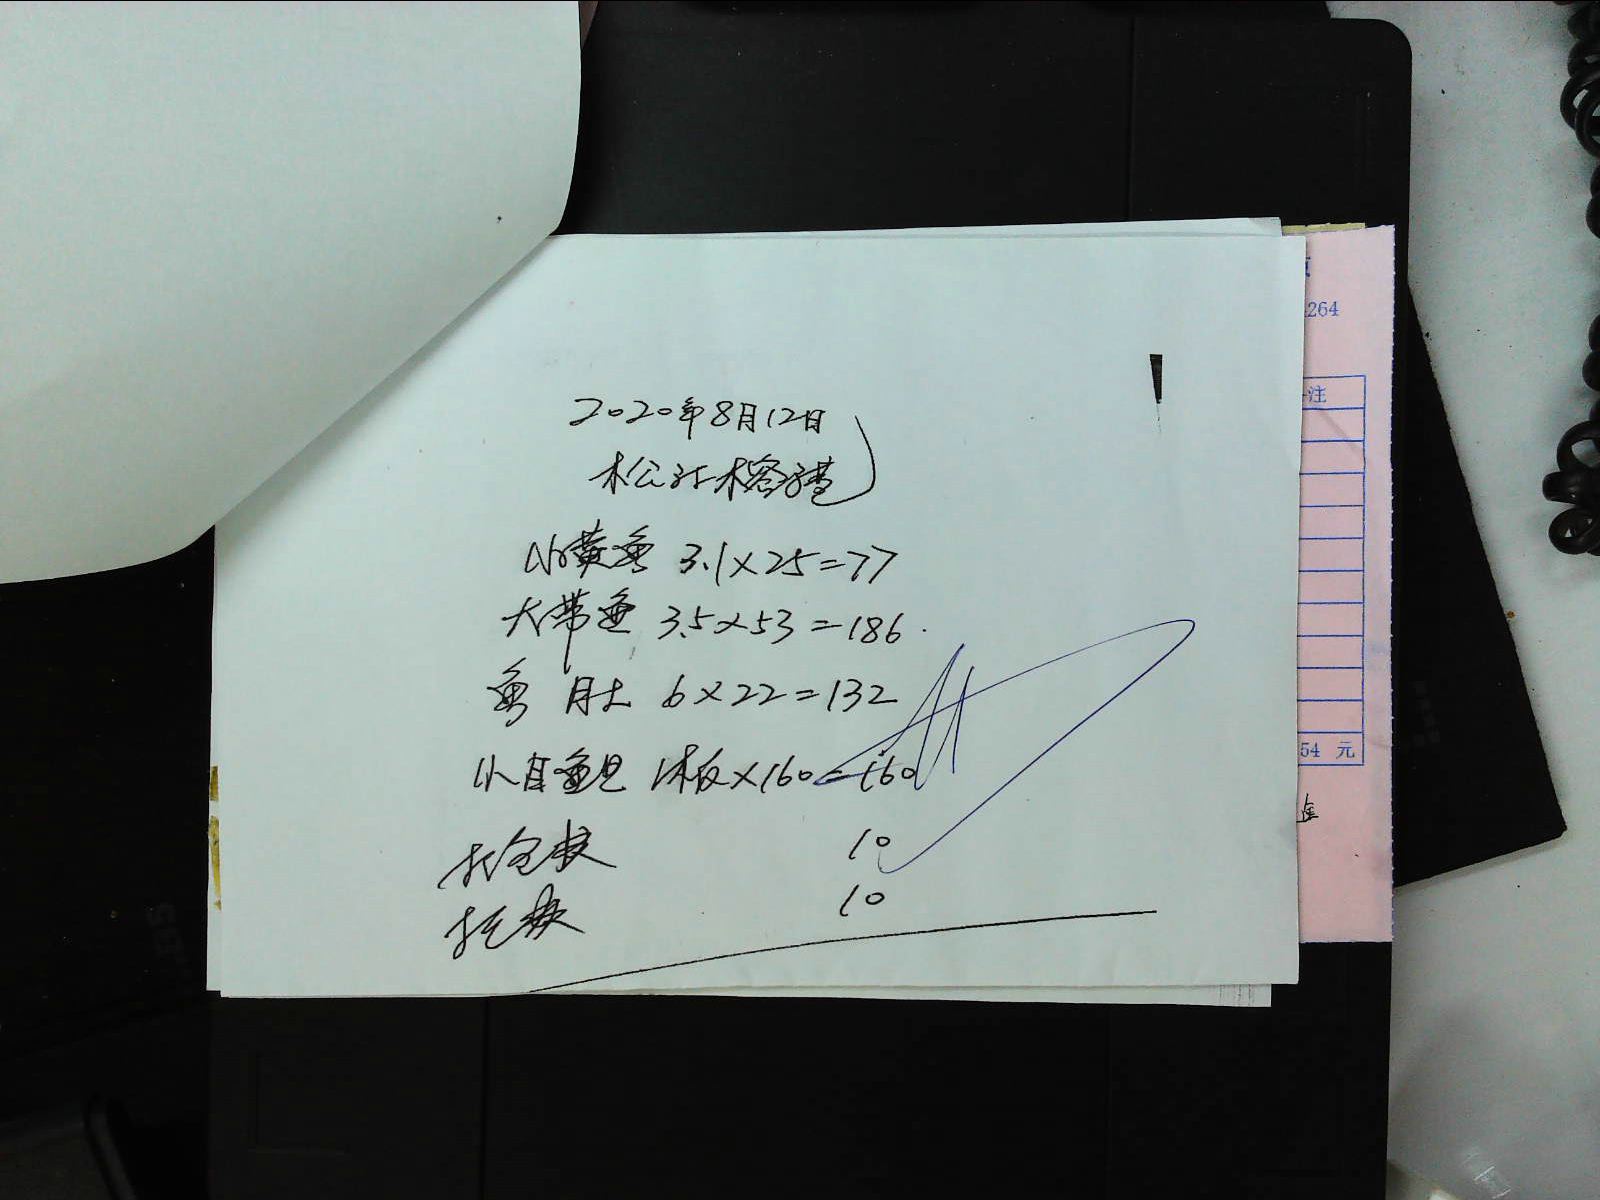 2020年8月12日
松江榕港
小黄鱼 3.1×25=77
大带鱼 3.5×53=186.
鱼肚 6×22=132
小目鱼 1板×160=160
打包费 10
托费 10
264
注
54 元